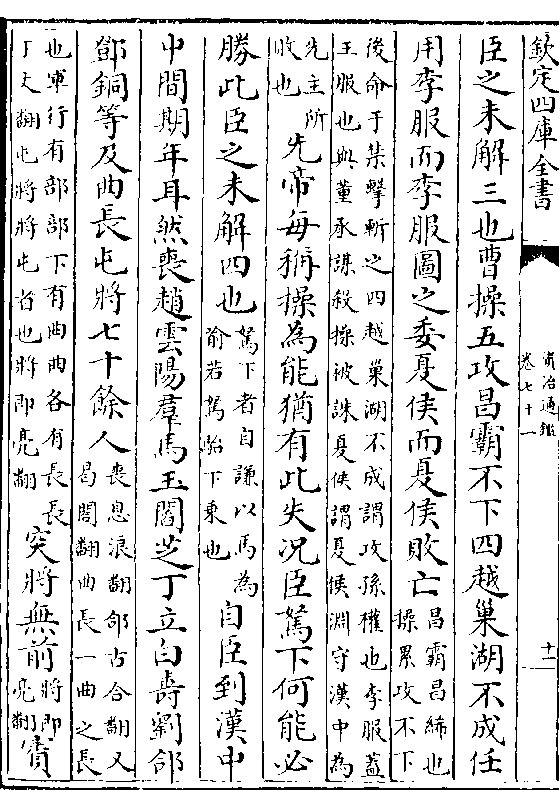 欽定四庫全書
資治通鑑
卷七十一
十二
臣之未解三也曹操五攻昌霸不下四越巢湖不成任
用李服而李服圖之委夏侯而夏侯敗亡
昌霸昌豨也
操累攻不下
後命于禁擊斬之四越巢湖不成謂攻孫權也李服蓋
王服也與董承謀殺操被誅夏侯謂夏侯淵守漢中為
先主所
敗也
先帝每稱操為能猶有此失况臣駑下何能必
勝此臣之未解四也
駑下者自謙以馬為
喻若駑駘下乗也
自臣到漢中
中間期年耳然喪趙雲陽羣馬玉閻芝丁立白壽劉郃
鄧銅等及曲長屯將七十餘人
喪息浪翻郃古合翻又
曷閤翻曲長一曲之長
也軍行有部部下有曲曲各有長長
丁丈翻屯將將屯者也將即亮翻
突將無前
將即
亮翻
賨